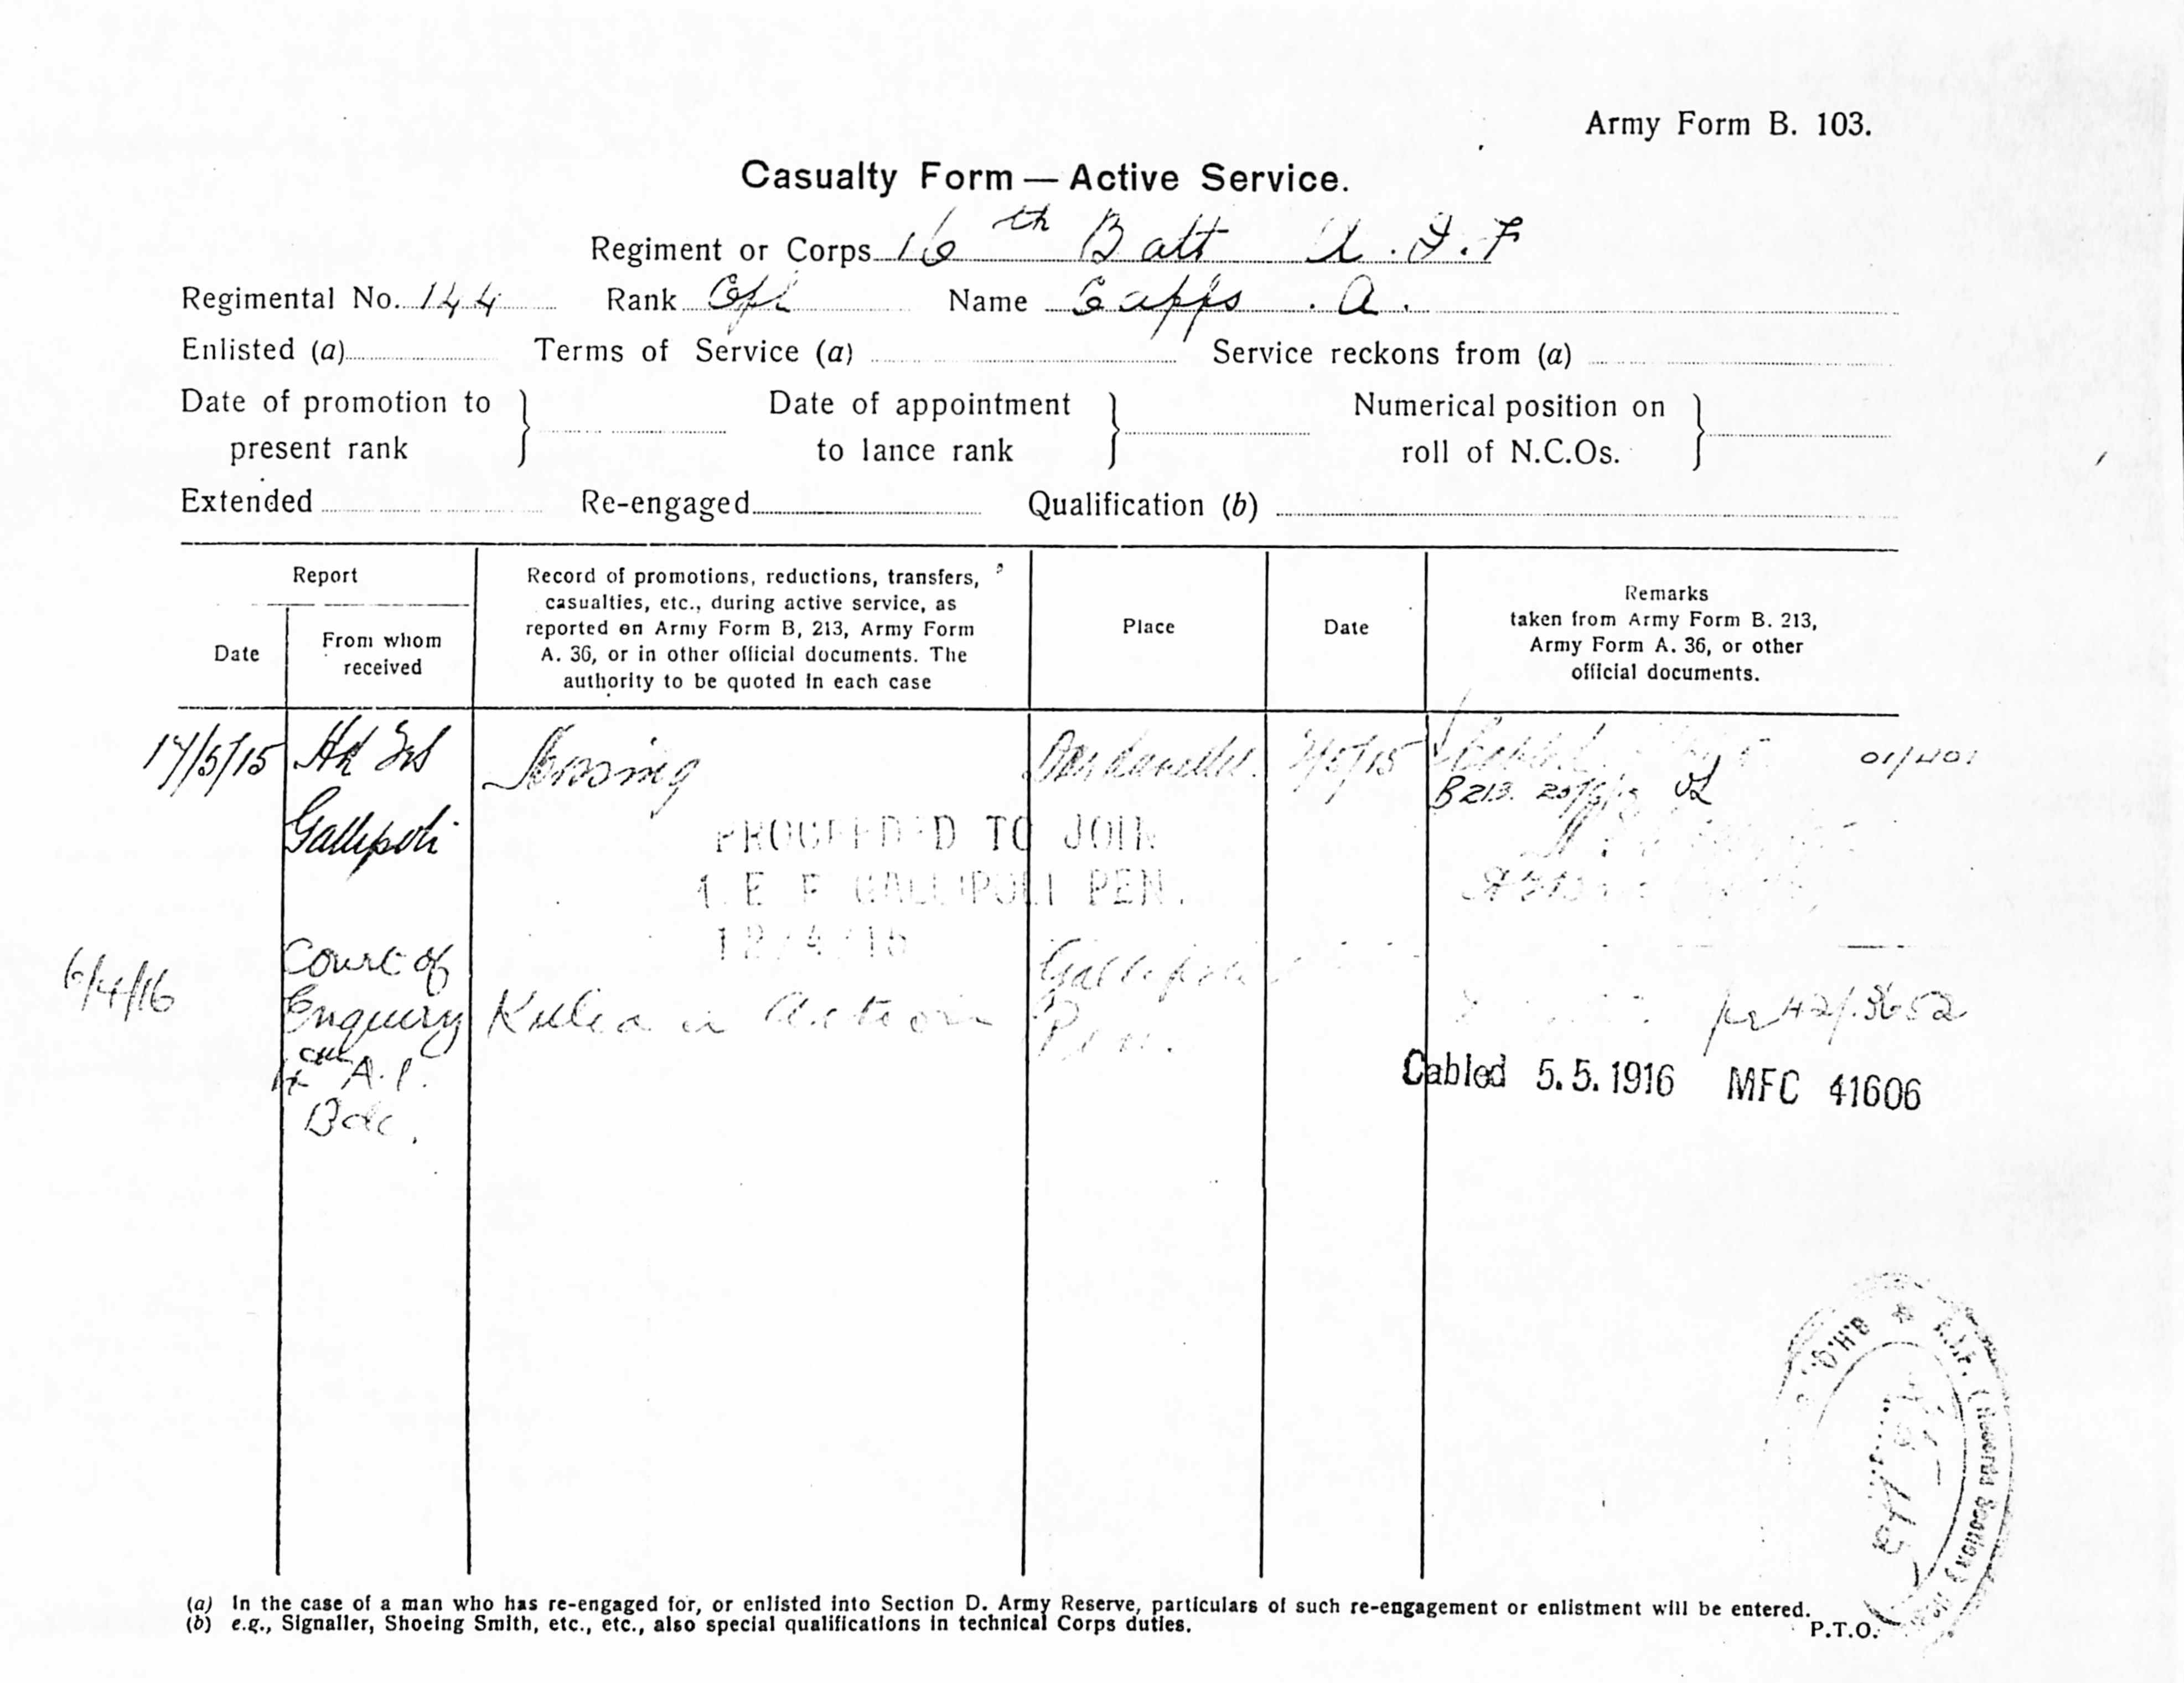 Army Form B. 103.
Casualty Form — Active Service.
Regiment or Corps 16th Batt A.I.F
Regimental No. 144 Rank Cpl Name Capps . A.
Enlisted (a) Terms of Service (a) Service reckons from (a)
Date of promotion to present rank } Date of appointment to lance rank } Numerical position on roll of N.C.Os. }
Extended Re-engaged Qualification (b)
Report
Date
From whom received
Record of promotions, reductions, transfers,
casualties, etc., during active service, as
reported on Army Form B, 213, Army Form
A. 36, or in other official documents. The
authority to be quoted in each case
Place
Date
Remarks
taken from Army Form B. 213,
Army Form A. 36, or other
official documents.
17/5/15 Missing Dardanelles. 2/5/15
B213.
Gallipoli
PROCEEDED TO JOIN
GALLIPOLI PEN.
12/4/15
6/4/16 Court of Enquiry Killed in Action Gallipoli Pen.
Bde.
Cabled 5.5.1916 MFC 41606
(Records Section)
(a) In the case of a man who has re-engaged for, or enlisted into Section D. Army Reserve, particulars of such re-engagement or enlistment will be entered.
(b) e.g., Signaller, Shoeing Smith, etc., etc., also special qualifications in technical Corps duties.
P.T.O.